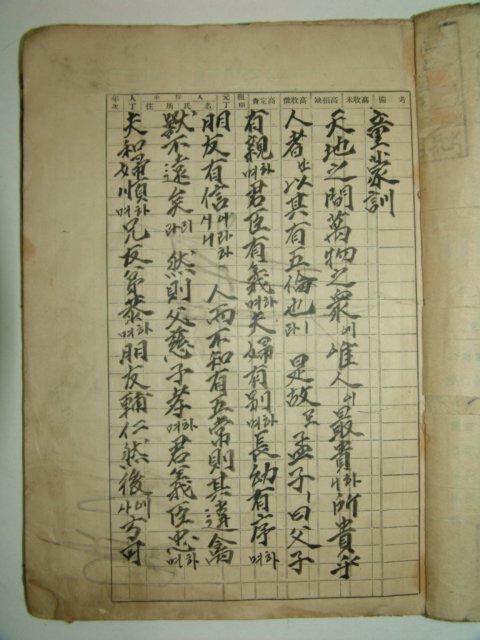 備考
未收高
缺損高
徵收高
童蒙訓
天地之間萬物之衆에唯人이最貴하니所貴乎
人者는以其有五倫也라ㅣ 是故로孟子ㅣ曰父子
有親하며君臣有義하며夫婦有別하며長幼有序하며
朋友有信이라하시니 人而不知有五常則其違禽
獸不遠矣리라 然則父慈子孝하며君義臣忠하며
夫和婦順하며兄友弟恭하며朋友輔仁然後에사方可